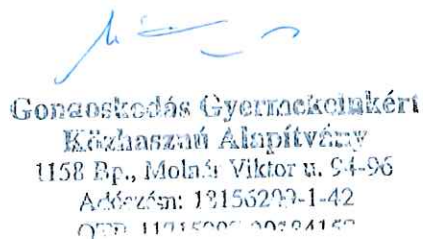 Gondoskodás Gyermekeinkért
Közhasznú Alapítvány
1158 Bp., Molnár Viktor u. 94-96
Adószám: 18156299-1-42
OTP